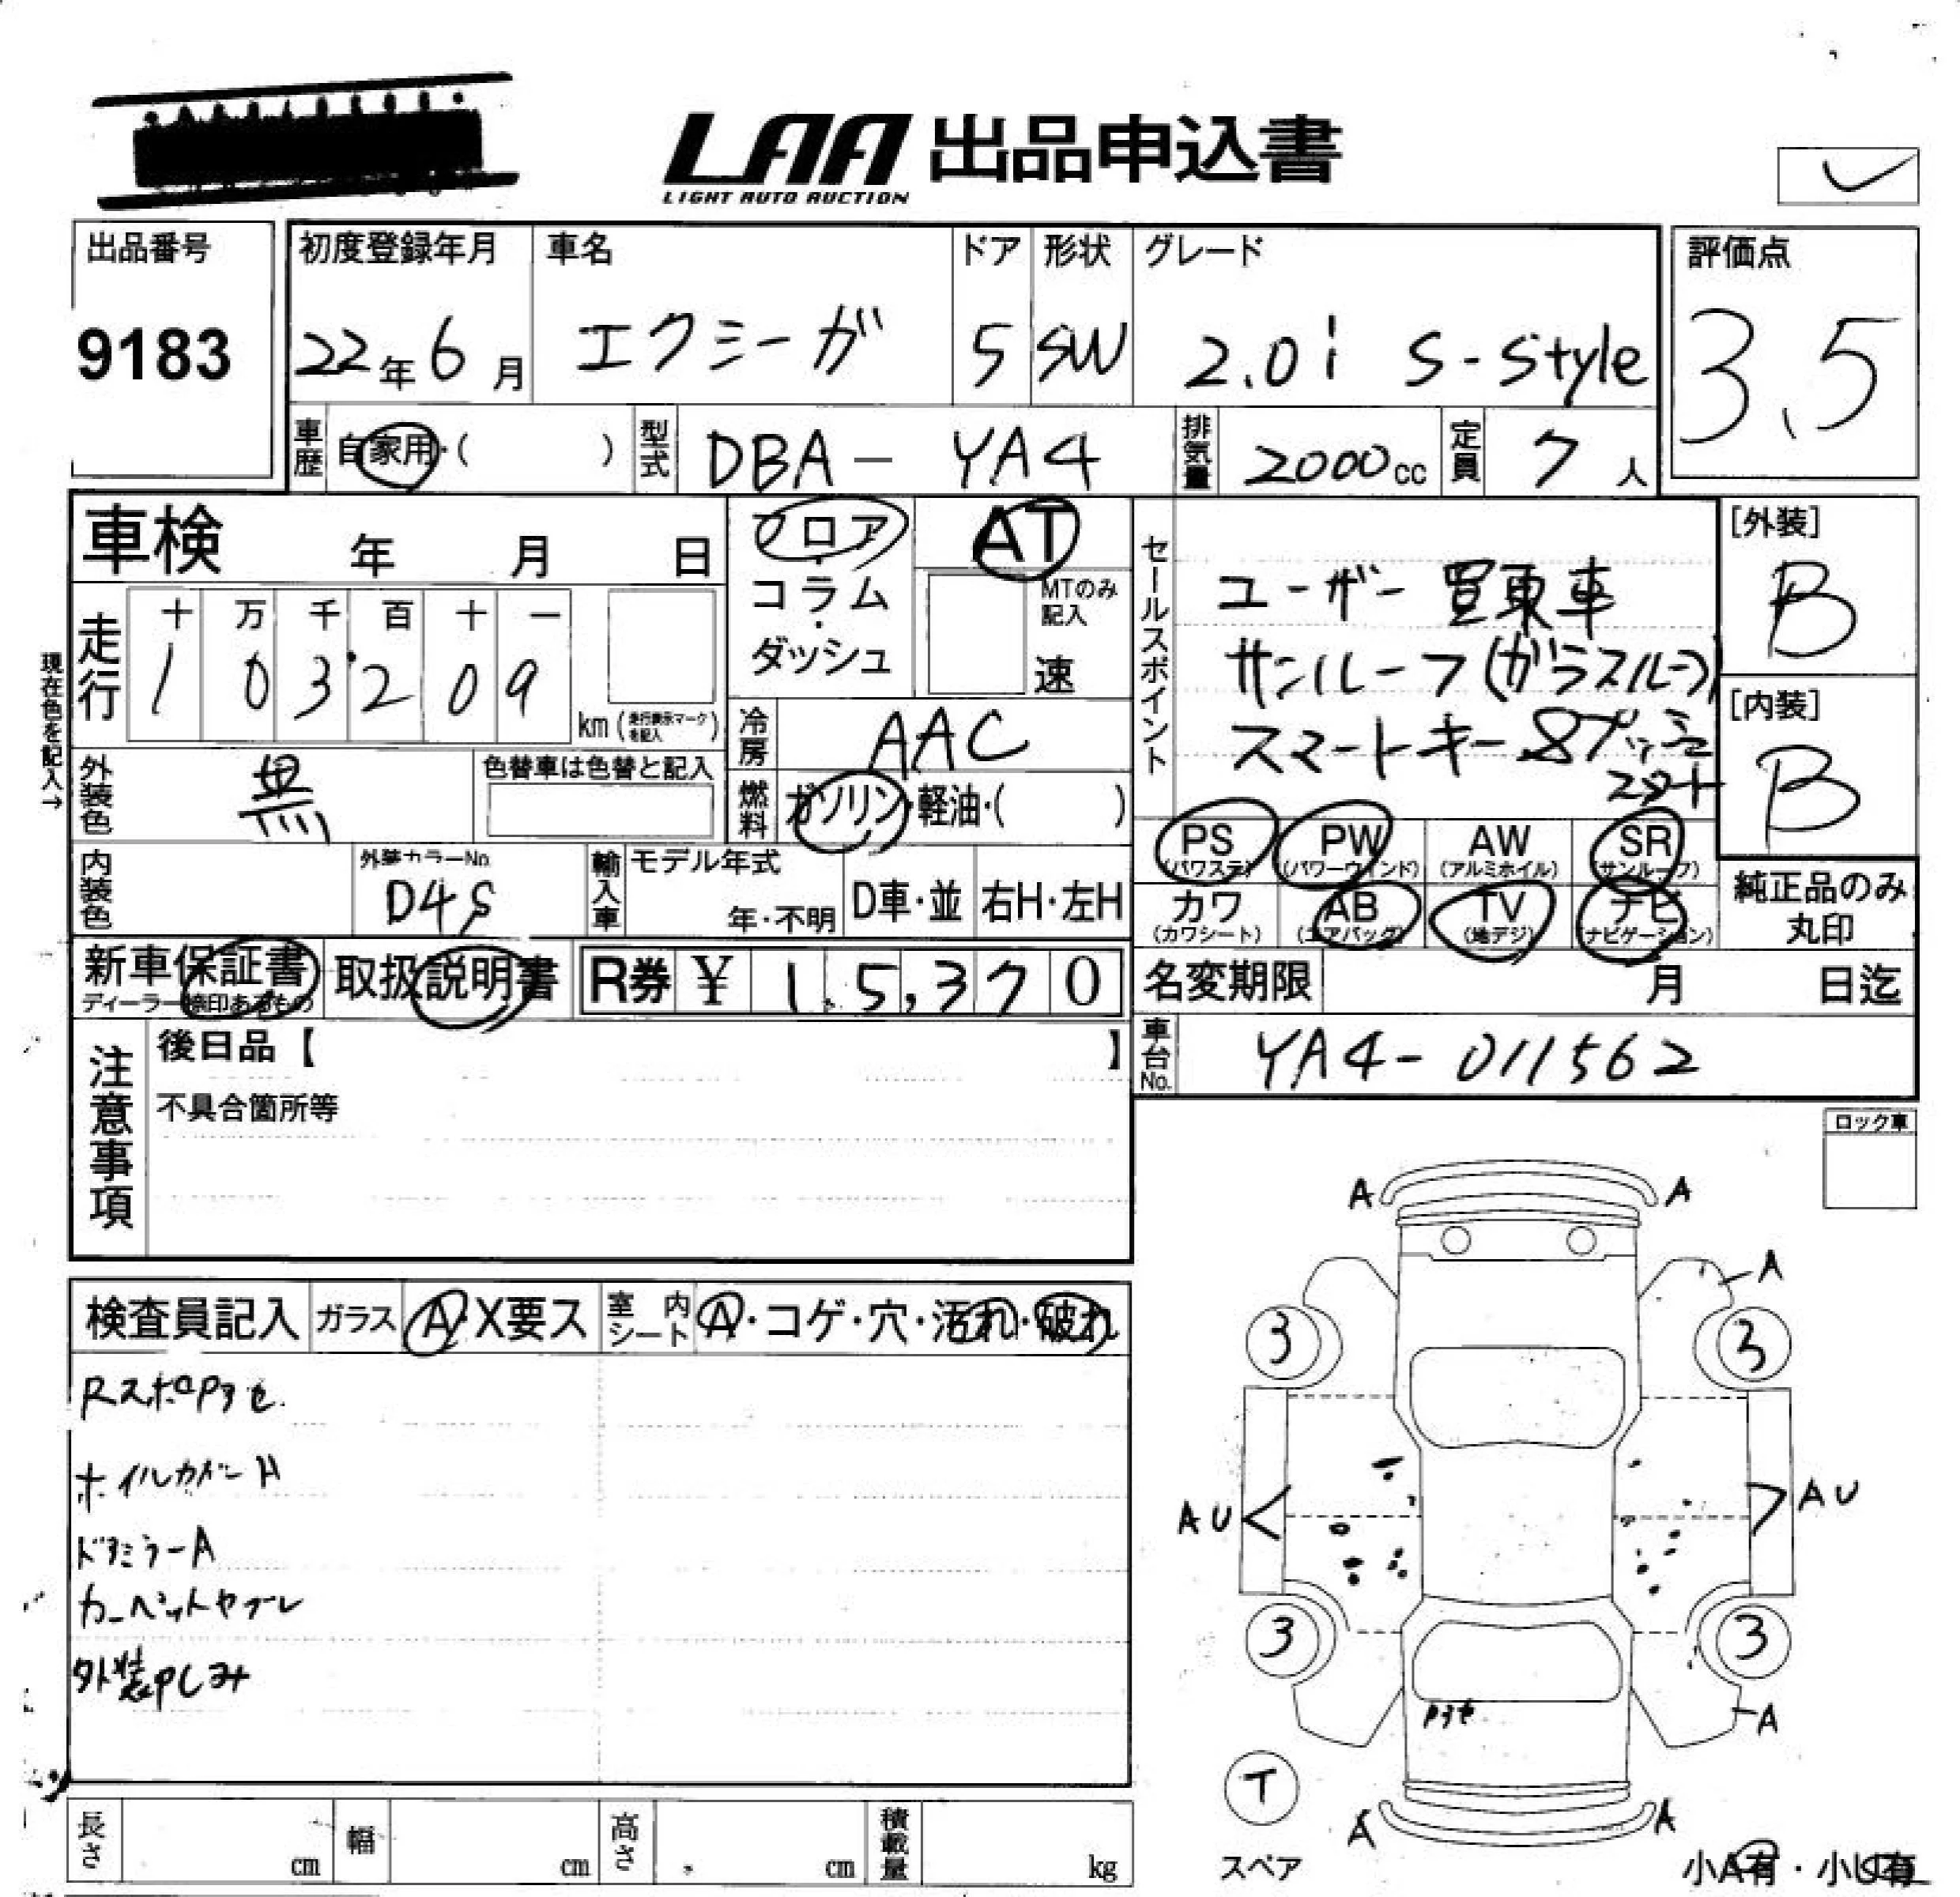 LAA 出品申込書
LIGHT AUTO AUCTION
出品番号
9183
初度登録年月
22年6月
車名
エクシーガ
ドア
5
形状
SW
グレード
2.0i S-Style
評価点
3.5
車歴
自家用・( )
型式
DBA-YA4
排気量
2000cc
定員
7人
車検 年 月 日
フロア・コラム・ダッシュ
AT
MTのみ記入
速
現在色を記入→
走行
十 万 千 百 十 一
1 0 3 2 0 9
km(走行表示マークを記入)
冷房
AAC
外装色
黒
色替車は色替と記入
燃料
ガソリン・軽油・( )
内装色
外装カラーNo.
D4S
輸入車
モデル年式
年・不明
D車・並
右H・左H
セールスポイント
ユーザー買取車
サンルーフ(ガラスルーフ)
スマートキー&プッシュ
スタート
[外装]
B
[内装]
B
PS
(パワステ)
PW
(パワーウインド)
AW
(アルミホイル)
SR
(サンルーフ)
カワ
(カワシート)
AB
(エアバッグ)
TV
(地デジ)
ナビ
(ナビゲーション)
純正品のみ
丸印
新車保証書
ディーラー捺印あるもの
取扱説明書
R券 ¥ 1 5,3 7 0
名変期限 月 日迄
車台No.
YA4-011562
注意事項
後日品【 】
不具合箇所等
ロック車
検査員記入
ガラス
A・X要ス
室内シート
A・コゲ・穴・汚れ・破れ
Rスポロアセ
ホイルカバーA
ドアミラーA
カーペットヤブレ
外装アしみ
A A
A
3 3
AU AU
3 3
アセ
A
T
スペア
A A
小A有・小U有
長さ cm
幅 cm
高さ cm
積載量 kg